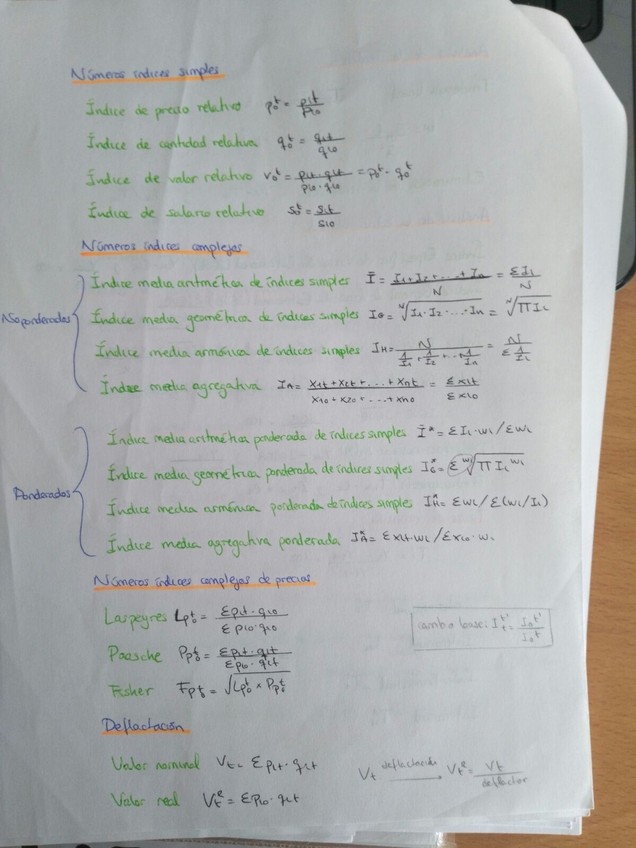 Números índices simples
Índice de precio relativo p₀ᵗ = pit / pi0
Índice de cantidad relativa q₀ᵗ = qit / qi0
Índice de valor relativo v₀ᵗ = pit · qit / pi0 · qi0 = p₀ᵗ · q₀ᵗ
Índice de salario relativo s₀ᵗ = sit / si0
Números índices complejos
No ponderados
Índice media aritmética de índices simples Ī = I₁ + I₂ + ... + Iₙ / N = ΣIi / N
Índice media geométrica de índices simples IG = ᴺ√I₁ · I₂ · ... · Iₙ = ᴺ√ΠIi
Índice media armónica de índices simples IH = N / 1/I₁ + 1/I₂ + ... + 1/Iₙ = N / Σ 1/Ii
Índice media agregativa IA = x1t + x2t + ... + xnt / x10 + x20 + ... + xn0 = Σxit / Σxi0
Ponderados
Índice media aritmética ponderada de índices simples Ī* = ΣIi · wi / Σwi
Índice media geométrica ponderada de índices simples I*G = Σwi√ΠIi^wi
Índice media armónica ponderada de índices simples I*H = Σwi / Σ(wi / Ii)
Índice media agregativa ponderada I*A = Σxit · wi / Σxi0 · wi
Números índices complejos de precios
Laspeyres Lp₀ᵗ = Σpit · qi0 / Σpi0 · qi0
cambio base: Iₜᵗ' = I₀ᵗ' / I₀ᵗ
Paasche Pp₀ᵗ = Σpit · qit / Σpi0 · qit
Fisher Fp₀ᵗ = √Lp₀ᵗ × Pp₀ᵗ
Deflactación
Valor nominal Vt = Σpit · qit
Vt deflactando → VtR = Vt / deflactor
Valor real VtR = Σpi0 · qit